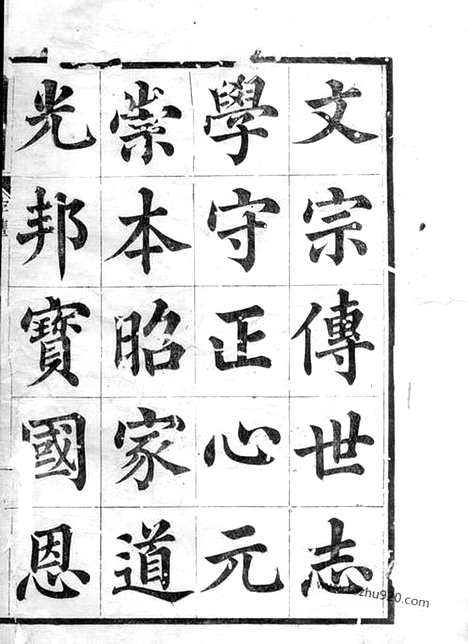 文宗傳世志
學守正心元
崇本昭家道
光邦寶國恩